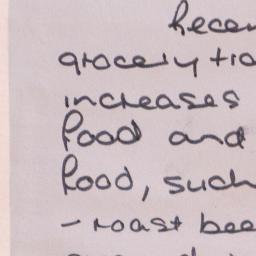 Recen
grocery tra
increases
food and
food, such
- roast bee